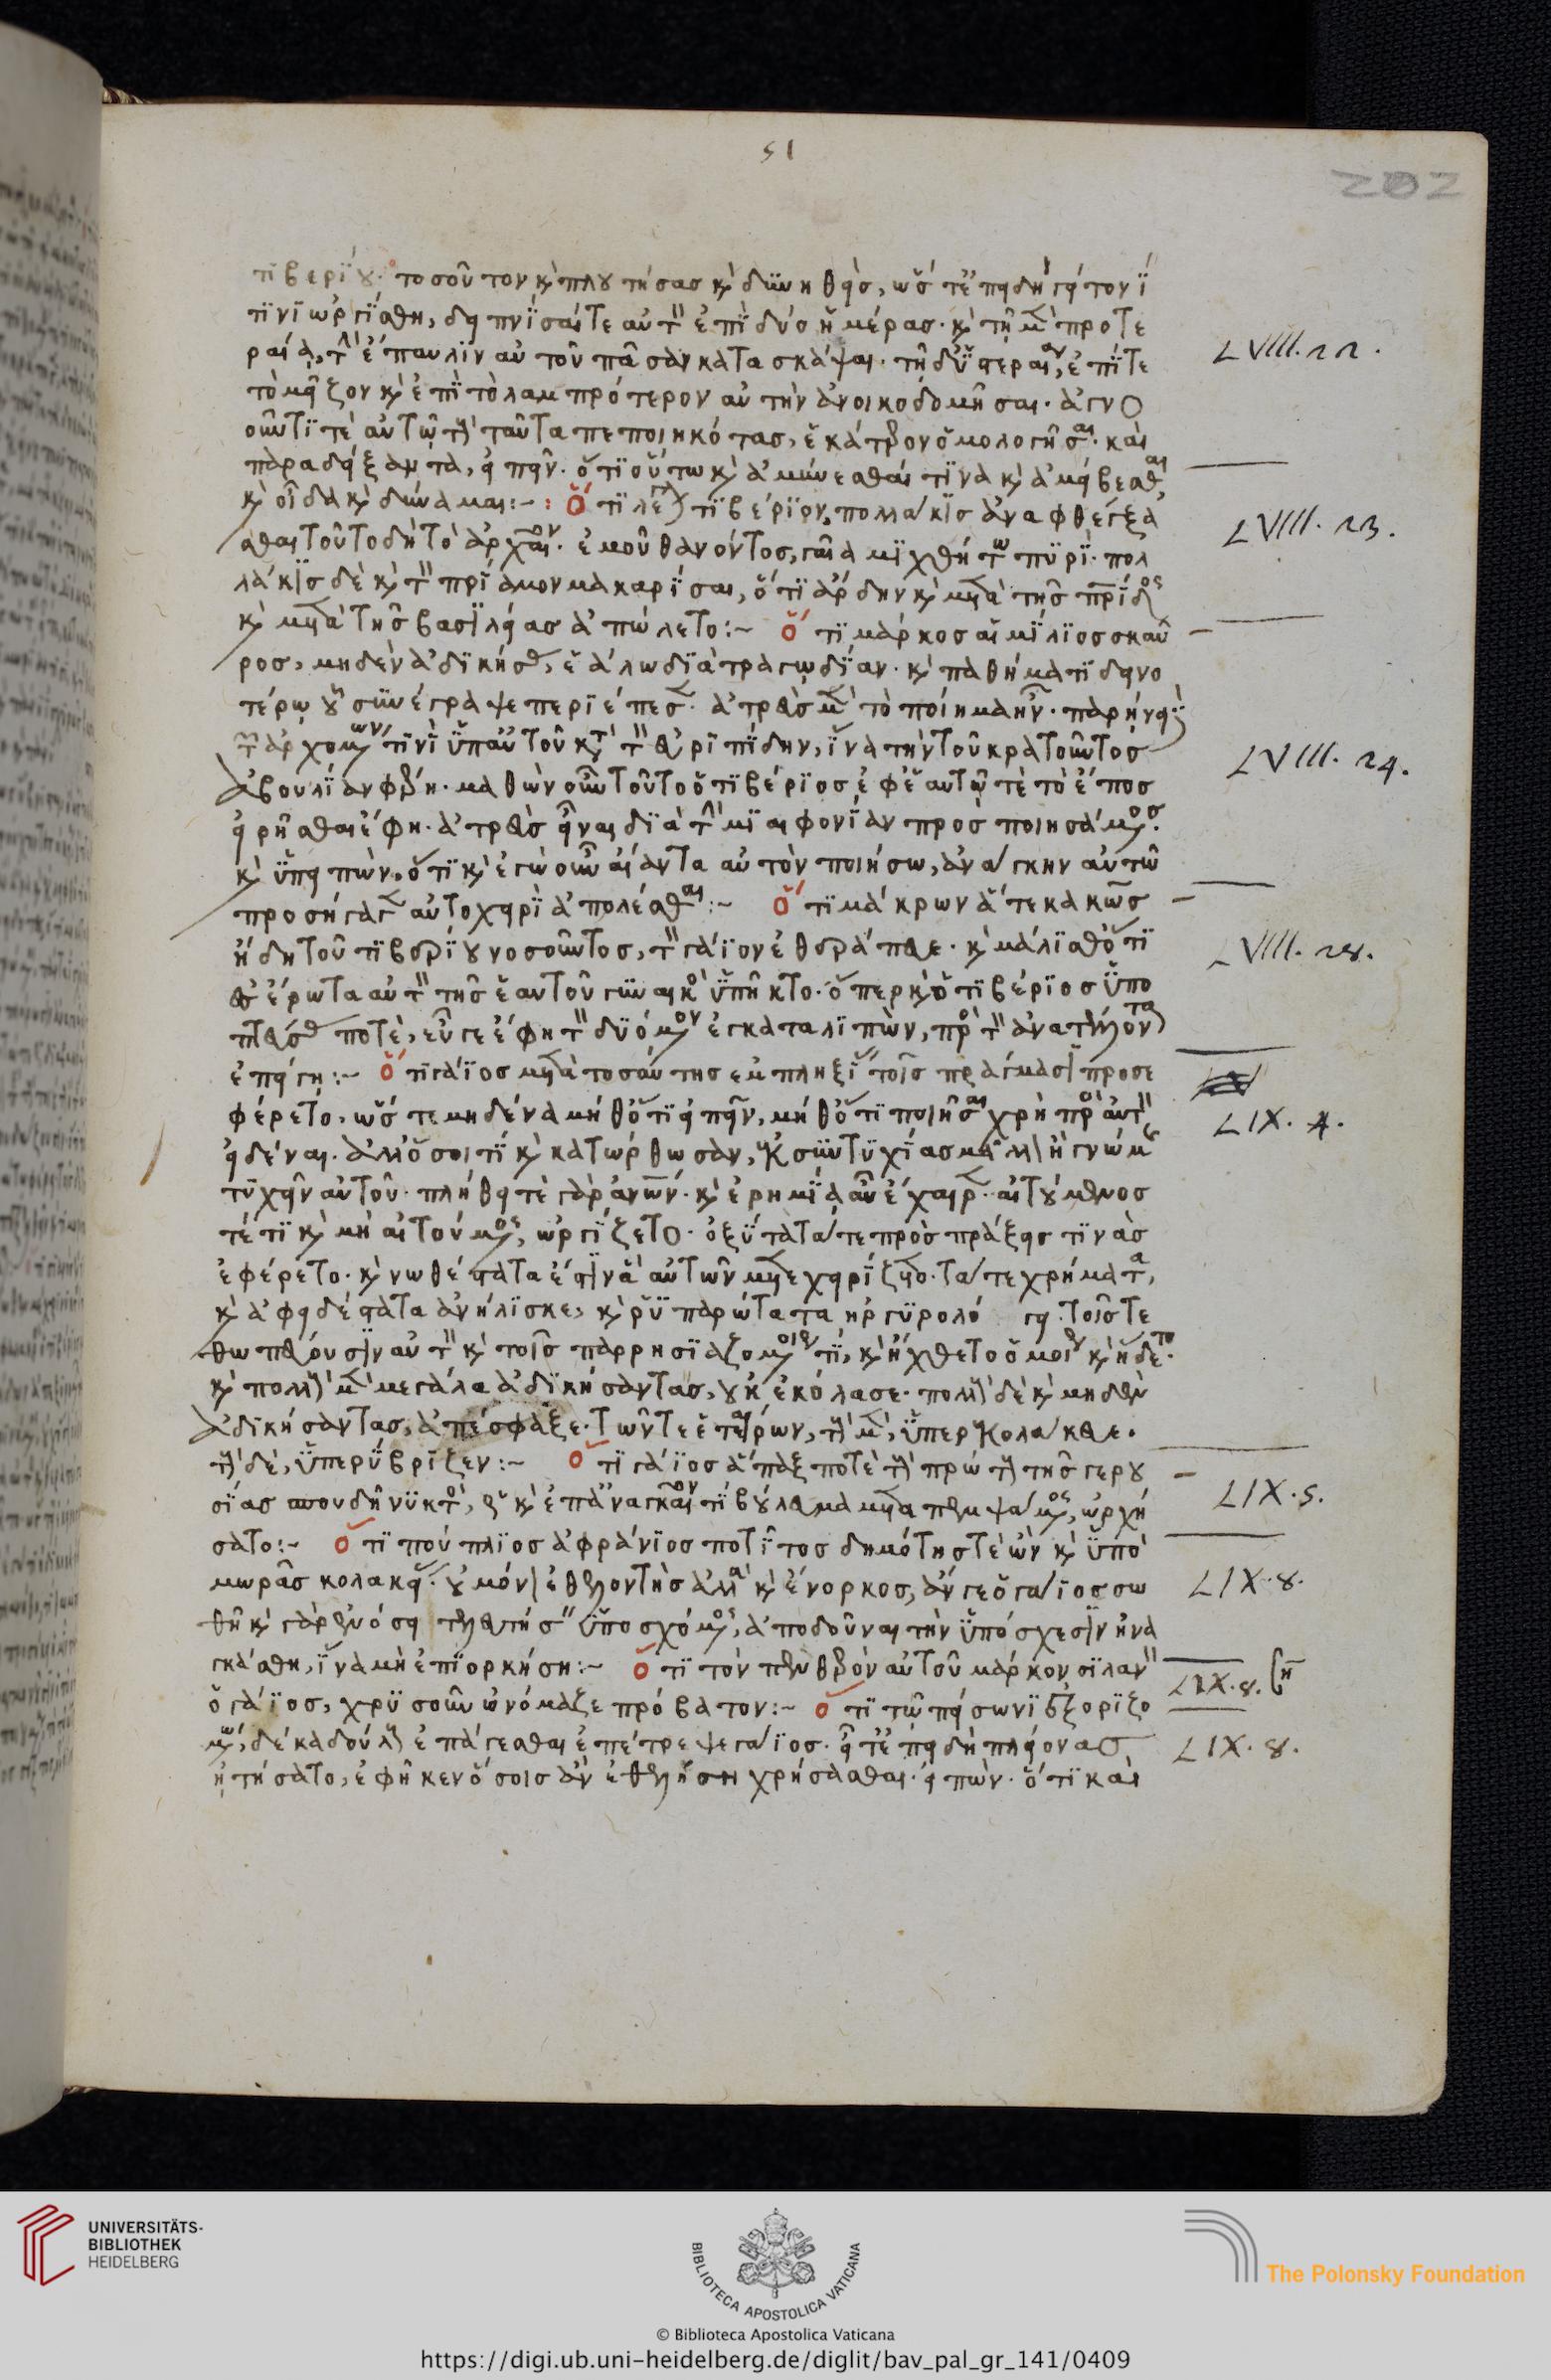 51
202
τιβερίου· τοσοῦτον ϗ πλουτήσας ϗ δυνηθεὶς, ὥστ' ἐπειδὴ γείτονί
τινι ὠργίσθη, δειπνίσαί τε αὐτὸν ἐπὶ δύο ἡμέρας· ϗ τῇ μὲν προτε
ραίᾳ, τὴν ἔπαυλιν αὐτοῦ πᾶσαν κατασκάψαι· τῇ δ' ὑστεραίᾳ, ἐπί τε
τὸ μεῖζον ϗ ἐπὶ τὸ λαμπρότερον αὐτὴν ἀνοικοδομῆσαι· ἀγνο
οῦντί τε αὐτῷ τοὺς ταῦτα πεποιηκότας, ἑκάτερον ὁμολογῆσαι· καὶ
παραδείξαντα, εἰπεῖν· ὅτι οὕτω ϗ ἀμύνεσθαί τινα ϗ ἀμείβεσθαι
ϗ οἶδα ϗ δύναμαι:~ Ὅτι λέγεται τιβέριον, πολλάκις ἀναφθέγξα
σθαι τοῦτο δὴ τὸ ἀρχαῖον· ἐμοῦ θανόντος, γαῖα μιχθήτω πυρί· πολ
λάκις δὲ ϗ τὸν πρίαμον μακαρίσαι, ὅτι ἄρδην ϗ μετὰ τῆς πατρίδος
ϗ μετὰ τῆς βασιλείας ἀπώλετο:~ ὅτι μάρκος αἰμίλιος σκαῦ
ρος, μηδὲν ἀδικήσας, ἑάλω διὰ τραγῳδίαν· ϗ παθήματι δεινο
τέρῳ οὗ συνέγραψε περιέπεσεν· ἀτρεὺς μὲν τὸ ποίημα ἦν· παρῄνει
τῶν ἀρχομένων τινὶ ὑπ' αὐτοῦ κατὰ τὸν εὐριπίδην, ἵνα τὴν τοῦ κρατοῦντος
ἀβουλίαν φέρῃ· μαθὼν οὖν τοῦτο ὁ τιβέριος, ἐφ' ἑαυτῷ τε τὸ ἔπος
εἰρῆσθαι ἔφη· ἀτρεὺς εἶναι διὰ τὴν μιαιφονίαν προσποιησάμενος·
ϗ ὑπειπὼν, ὅτι ϗ ἐγὼ οὖν αἴαντα αὐτὸν ποιήσω, ἀνάγκην αὐτῷ
προσήγαγεν αὐτοχειρὶ ἀπολέσθαι:~ ὅτι μάκρων ἅτε κακῶς
ἤδη τοῦ τιβερίου νοσοῦντος, τὸν γάϊον ἐθεράπευε· ϗ μάλισθ' ὅτι
ἐς ἔρωτα αὐτὸν τῆς ἑαυτοῦ γυναικὸς ὑπῆκτο· ὅπερ ϗ ὁ τιβέριος ὑπο
πτεύσας ποτὲ, εὖ γε ἔφη τὸν δυόμενον ἐγκαταλιπὼν, πρὸς τὸν ἀνατέλλοντα
ἐπείγῃ:~ ὅτι γάϊος μετὰ τοσαύτης ἐμπληξίας τοῖς πράγμασι προσε
φέρετο, ὥστε μηδένα μήθ' ὅτι εἰπεῖν, μήθ' ὅτι ποιῆσαι χρὴ πρὸς αὐτὸν
εἰδέναι· ἀλλ' ὅσοι τι ϗ κατώρθωσαν, ἐκ συντυχίας μᾶλλον ἢ γνώμης
τυχεῖν αὐτοῦ· πλήθει τὲ γὰρ ἀνθρώπων· ϗ ἐρημίᾳ ἂν ἔχαιρεν· αἰτούμενος
τέ τι ϗ μὴ αἰτούμενος, ὠργίζετο· ὀξύτατά τε πρὸς πράξεις τινὰς
ἐφέρετο· ϗ νωθέστατα ἔστιν ἃ αὐτῶν μετεχειρίζετο· τά τε χρήματα,
ϗ ἀφειδέστατα ἀνήλισκε, ϗ ῥυπαρώτατα ἠργυρολόγει· τοῖς τε
θωπεύουσιν αὐτὸν ϗ τοῖς παρρησιαζομένοις τι, ϗ ἤχθετο ὁμοίως ϗ ἥδετο·
ϗ πολλοὺς μὲν μεγάλα ἀδικήσαντας, οὐκ ἐκόλασε· πολλοὺς δὲ ϗ μηδὲν
ἀδικήσαντας, ἀπέσφαξε· τῶν τε ἑταίρων, τοὺς μὲν, ὑπερεκολάκευε·
τοὺς δὲ, ὑπερύβριζεν:~ ὅτι γάϊος ἅπαξ ποτὲ τοὺς πρώτους τῆς γερου
σίας σπουδῇ νυκτὸς, ὡς ϗ ἐπ' ἀναγκαῖόν τι βούλευμα μεταπεμψάμενος, ὠρχή
σατο:~ ὅτι πούπλιος ἀφράνιος ποτῖτος δημότης τὲ ὢν ϗ ὑπὸ
μωρᾶς κολακείας· οὐ μόνον ἐθελοντὴς ἀλλὰ ϗ ἔνορκος, ἄν γε ὁ γάϊος σω
θῇ ϗ γὰρ ἐνόσει τελευτήσειν ὑποσχόμενος, ἀποδοῦναι τὴν ὑπόσχεσιν ἠνα
γκάσθη, ἵνα μὴ ἐπιορκήσῃ:~ ὅτι τὸν πενθερὸν αὐτοῦ μάρκον σιλανὸν
ὁ γάϊος, χρυσοῦν ὠνόμαζε πρόβατον:~ ὅτι τῷ πείσωνι ἐξοριζο
μένῳ, δέκα δούλους ἐπάγεσθαι ἐπέτρεψε γάϊος· εἶτ' ἐπειδὴ πλείονας
ᾐτήσατο, ἐφῆκεν ὅσοις ἂν ἐθελήσῃ χρήσασθαι· εἰπὼν· ὅτι καὶ
LVIII. 22.
LVIII. 23.
LVIII. 24.
LVIII. 28.
LIX. 4.
LIX. 5.
LIX. 8.
LIX. 8.
LIX. 8.
UNIVERSITÄTS-
BIBLIOTHEK
HEIDELBERG
BIBLIOTECA APOSTOLICA VATICANA
The Polonsky Foundation
© Biblioteca Apostolica Vaticana
https://digi.ub.uni-heidelberg.de/diglit/bav_pal_gr_141/0409